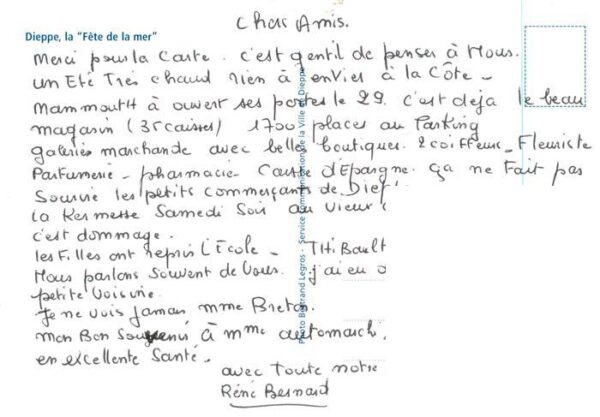 Chers Amis.
Dieppe, la "Fête de la mer"
Merci pour la Carte. c'est gentil de penser à Nous.
un Eté Très chaud rien à envier à la Côte -
Mammouth à ouvert ses portes le 29. c'est deja le beau
magasin (35 caisses) 1700 places au Parking
galeries marchande avec belles boutiques. 2 coiffeurs - Fleuriste
Parfumerie - pharmacie Caisse d'Epargne. ça ne Fait pas
Sourire les petits commerçants de Diep
la Kermesse Samedi Soir au Vieux
c'est dommage.
les Filles ont repris l'Ecole - THiBault
Nous parlons Souvent de Vous. j'ai eu
petite Voisine.
Je ne vois jamais mme Breton.
Mon Bon Souvenir à mme
en excellente Santé.
avec Toute notre
Réné Besnard
Photo Bertrand Legros - Service Communication de la Ville de Dieppe